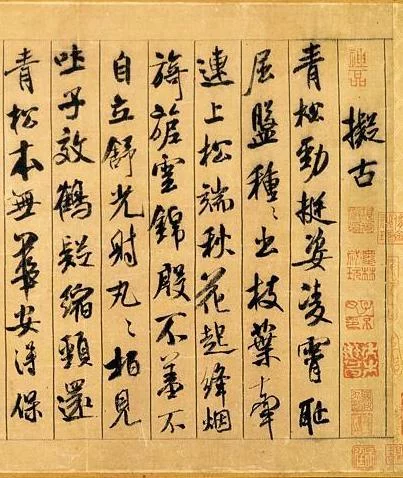 擬古
青松勁挺姿凌霄耻
屈盤種〻出枝葉牽
連上松端秋花起絳烟
旖旎雲錦殷不羞不
自立舒光射丸〻栢見
吐子效鶴疑縮頸還
青松本無華安得保
神品